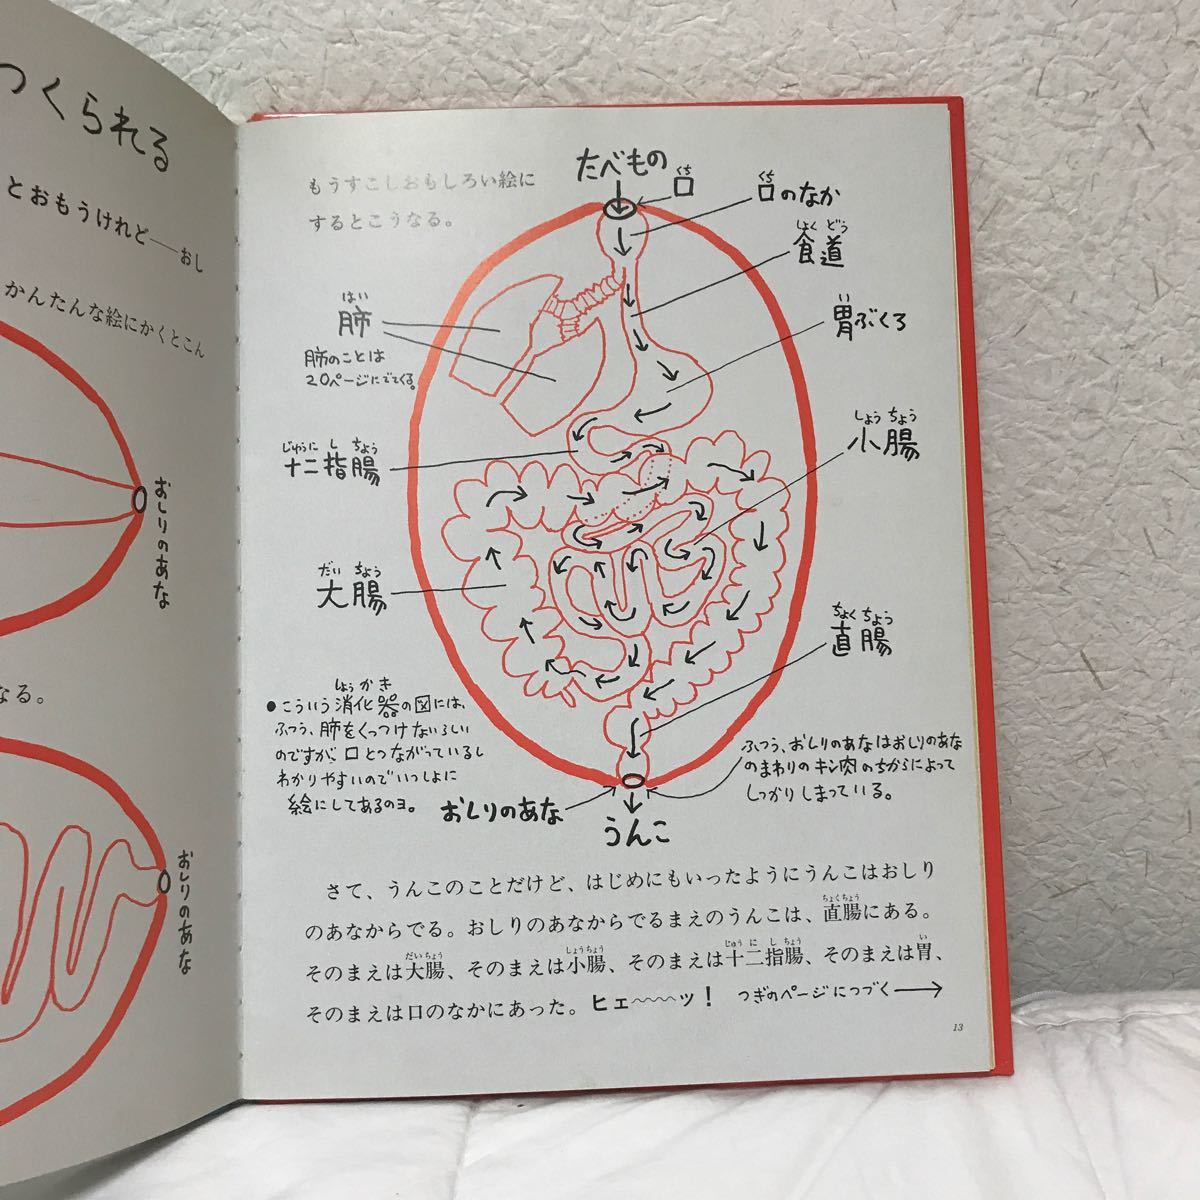 つくられる
とおもうけれど──おし
かんたんな絵にかくとこん
おしりのあな
なる。
おしりのあな
もうすこしおもしろい絵に
するとこうなる。
たべもの
くち
口
くち
口のなか
しょく どう
食道
い
胃ぶくろ
はい
肺
肺のことは
20ページにでてくる。
じゅうに し ちょう
十二指腸
しょう ちょう
小腸
だい ちょう
大腸
ちょく ちょう
直腸
しょう か き
●こういう消化器の図には、
ふつう、肺をくっつけないらしい
のですが、口とつながっているし
わかりやすいのでいっしょに
絵にしてあるのヨ。
ふつう、おしりのあなはおしりのあな
のまわりのキン肉のちからによって
しっかりしまっている。
おしりのあな
うんこ
さて、うんこのことだけど、はじめにもいったようにうんこはおしり
ちょくちょう
のあなからでる。おしりのあなからでるまえのうんこは、直腸にある。
だいちょう しょうちょう じゅう に し ちょう い
そのまえは大腸、そのまえは小腸、そのまえは十二指腸、そのまえは胃、
そのまえは口のなかにあった。ヒェ〜〜〜ッ! つぎのページにつづく→
13